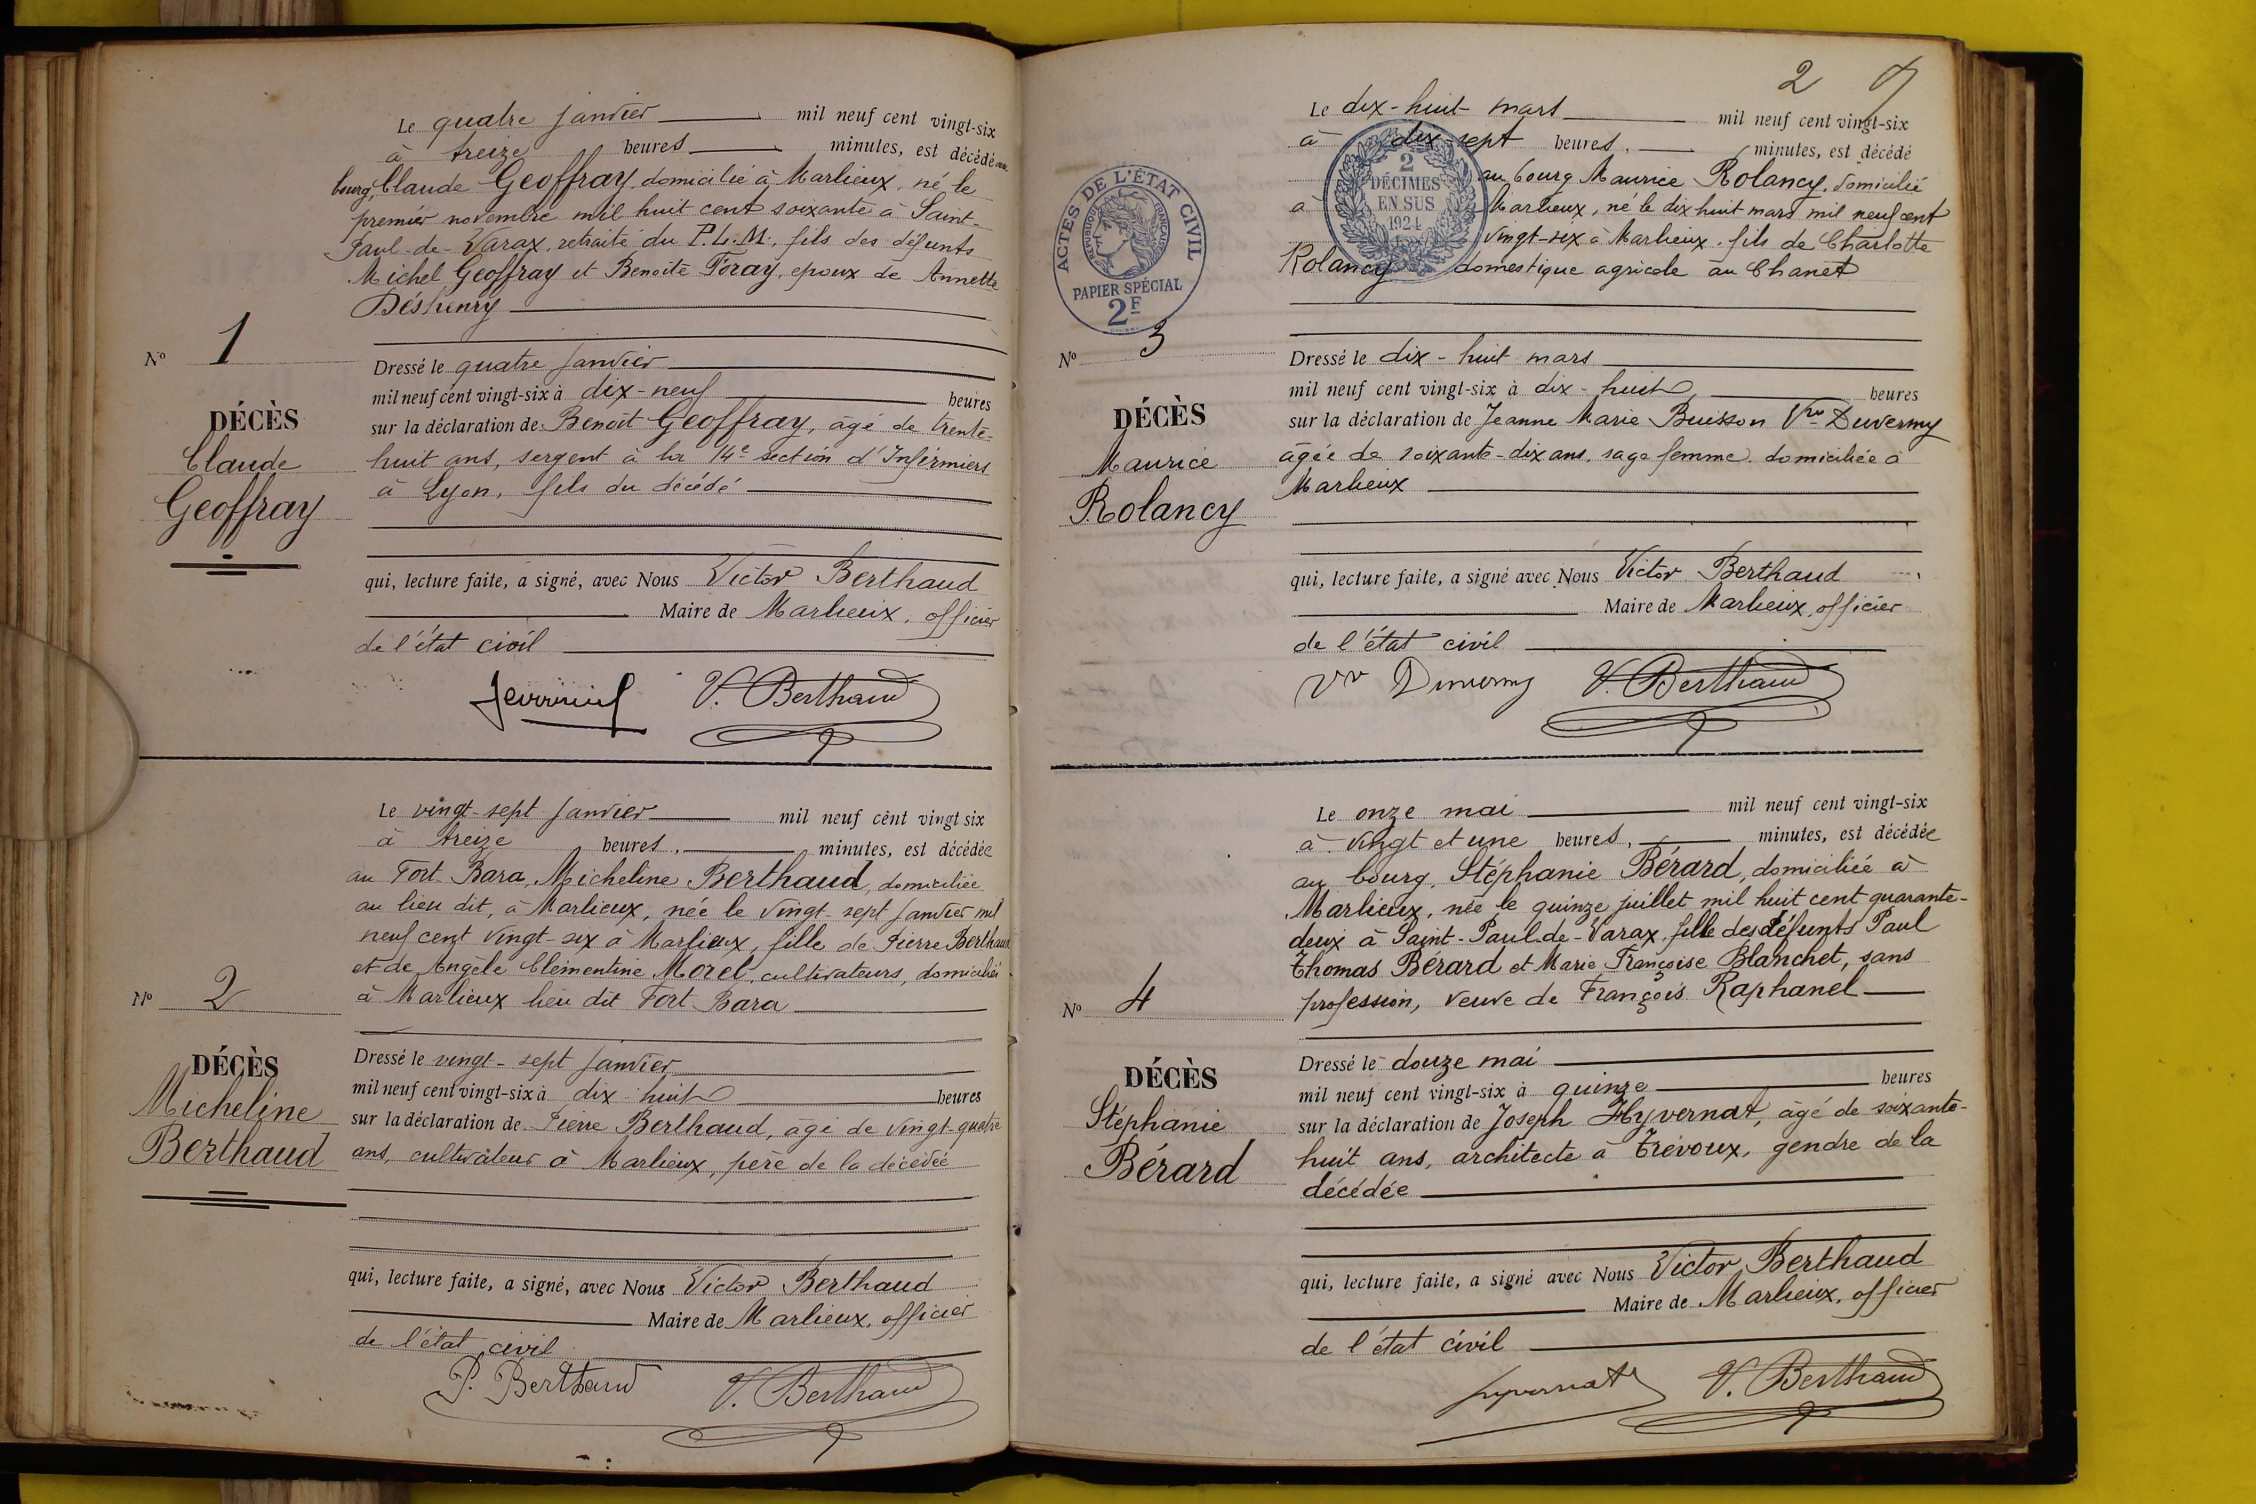 Le quatre janvier mil neuf cent vingt-six
à treize heures minutes, est décédé au
bourg, Claude Geoffray, domicilié à Marlieux, né le
premier novembre mil huit cent soixante à Saint-
Paul-de-Varax, retraité du P.L.M., fils des défunts
Michel Geoffray et Benoite Foray, époux de Annette
Déshenry
No 1
DÉCÈS
Claude
Geoffray
Dressé le quatre janvier
mil neuf cent vingt-six à dix-neuf heures
sur la déclaration de Benoît Geoffray, âgé de trente-
huit ans, sergent à la 14e section d'Infirmiers
à Lyon, fils du décédé
qui, lecture faite, a signé, avec Nous Victor Berthaud
Maire de Marlieux, officier
de l'état civil
V. Berthaud
Le vingt-sept janvier mil neuf cent vingt six
à treize heures, minutes, est décédée
au Fort Bara, Micheline Berthaud, domiciliée
au lieu dit, à Marlieux, née le vingt-sept janvier mil
neuf cent vingt-six à Marlieux, fille de Pierre Berthaud
et de Angèle Clémentine Morel, cultivateurs, domiciliés
à Marlieux lieu dit Fort Bara
No 2
DÉCÈS
Micheline
Berthaud
Dressé le vingt-sept janvier
mil neuf cent vingt-six à dix huit heures
sur la déclaration de Pierre Berthaud, âgé de vingt-quatre
ans, cultivateur à Marlieux, père de la décédée
qui, lecture faite, a signé, avec Nous Victor Berthaud
Maire de Marlieux, officier
de l'état civil
P. Berthaud V. Berthaud
2
Le dix-huit mars mil neuf cent vingt-six
à dix-sept heures, minutes, est décédé
au bourg Maurice Rolancy, domicilié
à Marlieux, né le dix huit mars mil neuf cent
vingt-six à Marlieux, fils de Charlotte
Rolancy domestique agricole au Chanet
2
DÉCIMES
EN SUS
1924
ACTES DE L'ÉTAT CIVIL
RÉPUBLIQUE FRANÇAISE
PAPIER SPÉCIAL
2F
No 3
DÉCÈS
Maurice
Rolancy
Dressé le dix-huit mars
mil neuf cent vingt-six à dix-huit heures
sur la déclaration de Jeanne Marie Buisson Vve Duverny
âgée de soixante-dix ans, sage femme, domiciliée à
Marlieux
qui, lecture faite, a signé avec Nous Victor Berthaud
Maire de Marlieux, officier
de l'état civil
Vv Duverny V. Berthaud
Le onze mai mil neuf cent vingt-six
à vingt et une heures, minutes, est décédée
au bourg, Stéphanie Bérard, domiciliée à
Marlieux, née le quinze juillet mil huit cent quarante-
deux à Saint-Paul-de-Varax, fille des défunts Paul
Thomas Bérard et Marie Françoise Blanchet, sans
profession, veuve de François Raphanel
No 4
DÉCÈS
Stéphanie
Bérard
Dressé le douze mai
mil neuf cent vingt-six à quinze heures
sur la déclaration de Joseph Hyvernat, âgé de soixante-
huit ans, architecte à Trévoux, gendre de la
décédée
qui, lecture faite, a signé avec Nous Victor Berthaud
Maire de Marlieux, officier
de l'état civil
hyvernat V. Berthaud